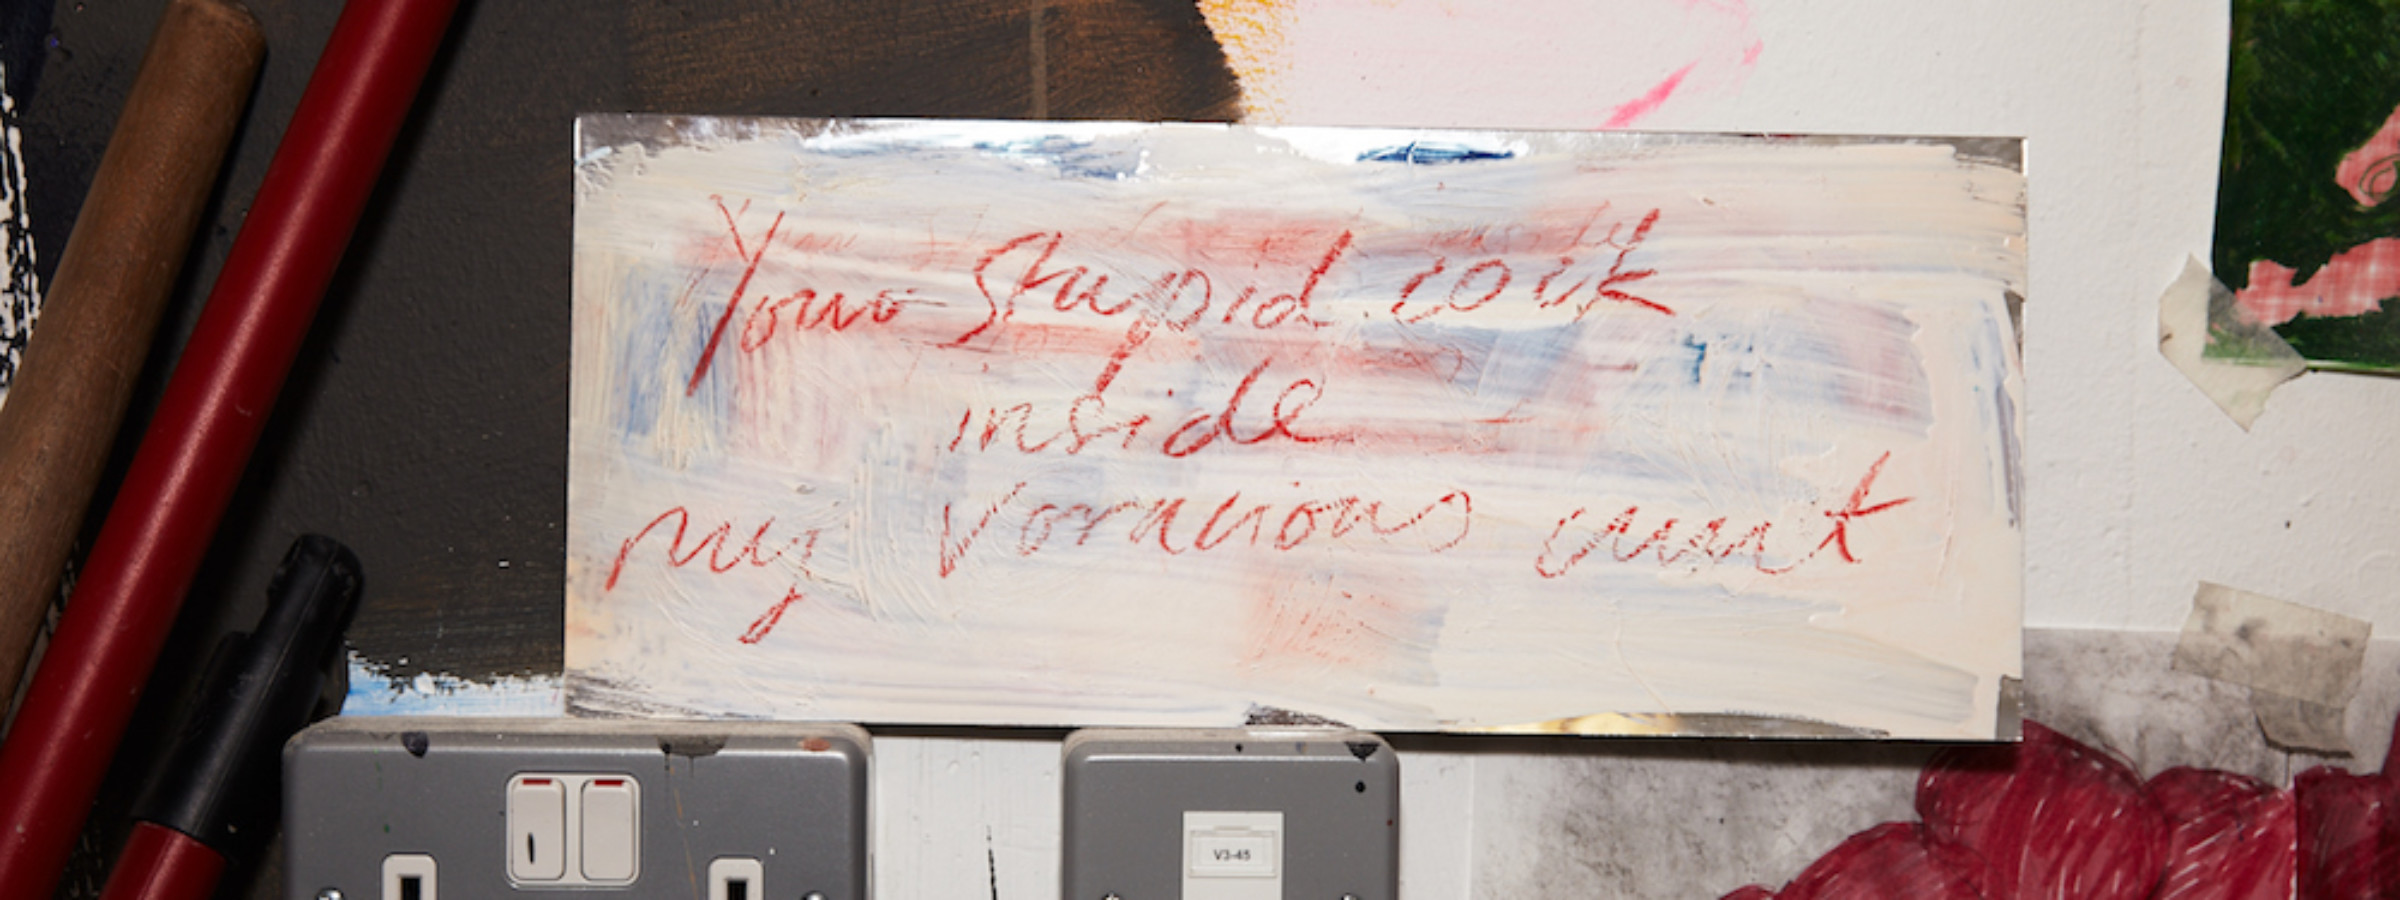 Your stupid cock
inside
my voracious cunt
V3-45